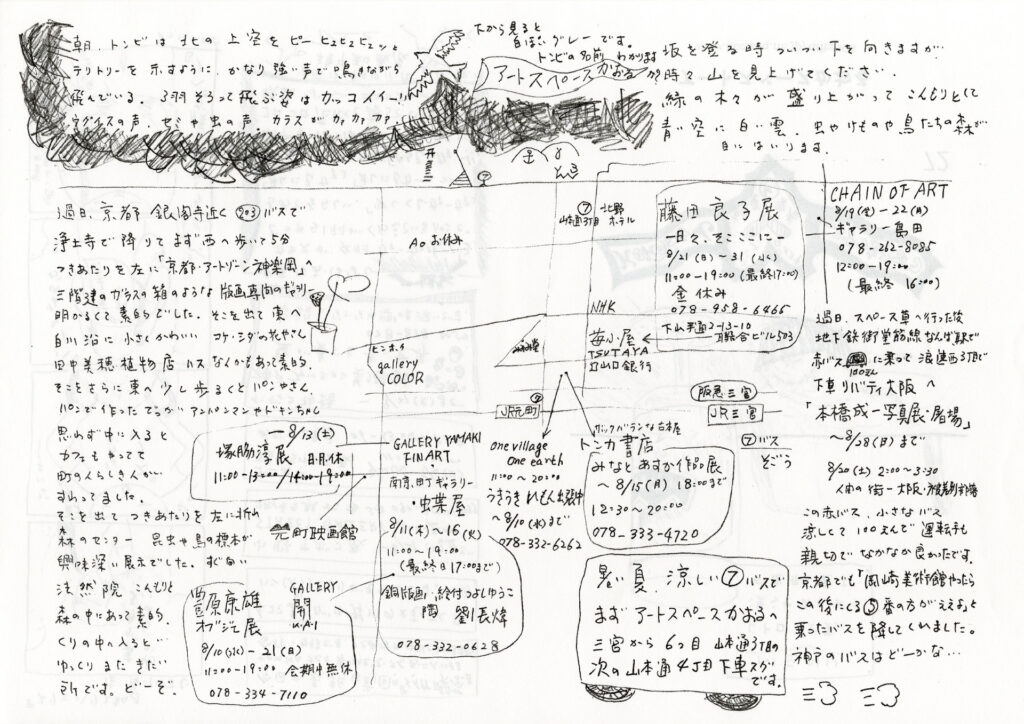 朝、トンビは北の上空をピー ヒュヒュヒュッと
テリトリーを示すように、かなり強い声で鳴きながら
飛んでいる。3羽そろって飛ぶ姿はカッコイイー!!
ウグイスの声、セミや虫の声、カラスが カァ カァ ファ
下から見ると
白っぽいグレーです。
トンビの名前、わかります
アートスペースかおる
坂を登る時 ついつい下を向きますが…
時々、山を見上げてください。
緑の木々が 盛り上がって こんもりとして
青い空に白い雲、虫やけものや鳥たちの森が
目にはいります。
過日、京都 銀閣寺近く 203バスで
浄土寺で降りてまず西へ歩いて5分
つきあたりを左に「京都・アートゾーン神楽岡」へ
三階建のガラスの箱のような 版画専門のギャラリー
明かるくて素的でした。そこを出て 東へ
白川沿に小さくかわいい コケ・シダの花やさん
田中美穂植物店 ハスなんかもあって素的
そこをさらに東へ少し歩くとパンやさん
パンで作った アンパンマンやドキンちゃん
思わず中に入ると
カフェもやってて
町のくらしきんが
すわってました。
そこを出て つきあたりを左に折れ
森のセンター 昆虫や鳥の標本が
興味深い展示でした。すぐ向い
法然院 こんもりと
森の中にあって素的
くりの中へ入って
ゆっくり また きたい
所です。どーぞ。
Ao お休み
ヒンホイ
gallery
COLOR
⑦
山本通3丁目
北野
ホテル
藤田良子展
ー日々、そこここにー
8/21(日)〜31(水)
11:00-19:00(最終17:00)
金 休み
078-958-6466
下山手通2-13-10
CHAIN OF ART
8/19(金)-22(月)
ギャラリー島田
078-262-8085
12:00-19:00
(最終 16:00)
NHK
苺小屋
TSUTAYA
山口銀行
過日、スペース草へ行った後
地下鉄御堂筋線なんば駅で
赤バス に乗って 浪速西3丁目で
100えん
下車リバティ大阪へ
「本橋成一写真展・屠場」
〜8/28(日)まで
8/20(土)2:00〜3:30
この赤バス、小さなバス
涼しくて100えんで 運転手も
親切でなかなか良かったです。
京都でも「岡崎美術館やったら
この後にくる⑤番の方がええよ」と
乗ったバスを降してくれました。
神戸のバスはどーかな…
JR元町
阪急三宮
JR三宮
⑦バス
そごう
one village
one earth
11:00〜20:00
うさうさ れもん出張中
〜8/10(水)まで
078-332-6262
トンカ書店
みなとあすか作品展
〜8/15(月)18:00まで
12:30〜20:00
078-333-4720
ー8/13(土)
塚脇淳展 日月休
11:00-13:00/14:00-19:00
元町映画館
GALLERY YAMAKI
FIN ART
南京町ギャラリー
・蝶屋
8/11(木)〜16(火)
11:00〜19:00
(最終日17:00まで)
銅版画・絵付 つぼしゅうこ
陶 劉長煒
078-332-0628
菅原康雄
オブジェ展
GALLERY
開
KAI
8/10(水)-21(日)
11:00-19:00 会期中無休
078-334-7110
暑い夏、涼しい⑦バスで
まずアートスペースかおるへ
三宮から6つ目 山本通3丁目の
次の山本通4丁目下車スグ
です。